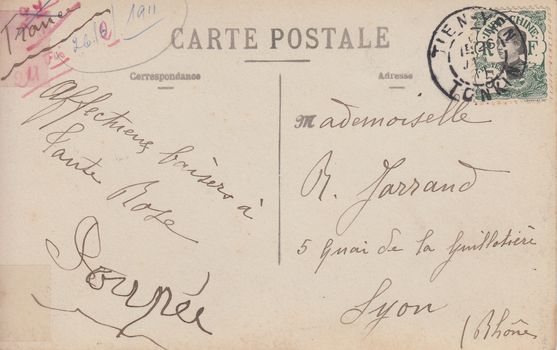 France
26/6 1911
CARTE POSTALE
Correspondance
Adresse
TIEN-YEN
TONKIN
INDO-CHINE
Affectueux baisers à
Tante Rose
Poupée
Mademoiselle
R. Jarrand
5 quai de la Guillotière
Lyon
(Rhône)